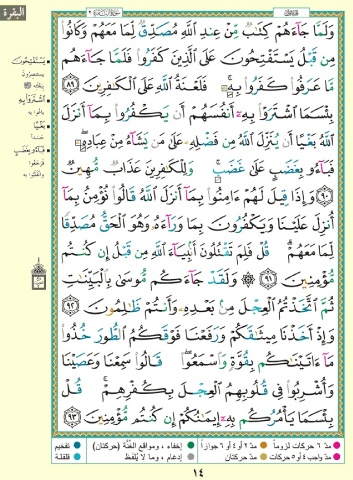 البقرة
وَلَمَّا جَآءَهُمْ كِتَٰبٌ مِّنْ عِندِ ٱللَّهِ مُصَدِّقٌ لِّمَا مَعَهُمْ وَكَانُوا۟
مِن قَبْلُ يَسْتَفْتِحُونَ عَلَى ٱلَّذِينَ كَفَرُوا۟ فَلَمَّا جَآءَهُم
مَّا عَرَفُوا۟ كَفَرُوا۟ بِهِۦ ۚ فَلَعْنَةُ ٱللَّهِ عَلَى ٱلْكَٰفِرِينَ ٨٩
بِئْسَمَا ٱشْتَرَوْا۟ بِهِۦٓ أَنفُسَهُمْ أَن يَكْفُرُوا۟ بِمَآ أَنزَلَ
ٱللَّهُ بَغْيًا أَن يُنَزِّلَ ٱللَّهُ مِن فَضْلِهِۦ عَلَىٰ مَن يَشَآءُ مِنْ عِبَادِهِۦ ۖ
فَبَآءُو بِغَضَبٍ عَلَىٰ غَضَبٍ ۚ وَلِلْكَٰفِرِينَ عَذَابٌ مُّهِينٌ
٩٠ وَإِذَا قِيلَ لَهُمْ ءَامِنُوا۟ بِمَآ أَنزَلَ ٱللَّهُ قَالُوا۟ نُؤْمِنُ بِمَآ
أُنزِلَ عَلَيْنَا وَيَكْفُرُونَ بِمَا وَرَآءَهُۥ وَهُوَ ٱلْحَقُّ مُصَدِّقًا
لِّمَا مَعَهُمْ ۗ قُلْ فَلِمَ تَقْتُلُونَ أَنۢبِيَآءَ ٱللَّهِ مِن قَبْلُ إِن كُنتُم
مُّؤْمِنِينَ ٩١ ۞ وَلَقَدْ جَآءَكُم مُّوسَىٰ بِٱلْبَيِّنَٰتِ
ثُمَّ ٱتَّخَذْتُمُ ٱلْعِجْلَ مِنۢ بَعْدِهِۦ وَأَنتُمْ ظَٰلِمُونَ ٩٢
وَإِذْ أَخَذْنَا مِيثَٰقَكُمْ وَرَفَعْنَا فَوْقَكُمُ ٱلطُّورَ خُذُوا۟
مَآ ءَاتَيْنَٰكُم بِقُوَّةٍ وَٱسْمَعُوا۟ ۖ قَالُوا۟ سَمِعْنَا وَعَصَيْنَا
وَأُشْرِبُوا۟ فِى قُلُوبِهِمُ ٱلْعِجْلَ بِكُفْرِهِمْ ۚ قُلْ
بِئْسَمَا يَأْمُرُكُم بِهِۦٓ إِيمَٰنُكُمْ إِن كُنتُم مُّؤْمِنِينَ ٩٣
يَسْتَفْتِحُونَ
يستنصرون
ٱشْتَرَوْا۟ بِهِۦٓ
باعوا به
بَغْيًا
حسداً
فَبَآءُو بِغَضَبٍ
فرجعوا
مدّ ٦ حركات لزوماً
مدّ ٢ أو ٤ أو ٦ جوازاً
إخفاء، ومواقع الغُنَّة (حركتان)
تفخيم
مدّ واجب ٤ أو ٥ حركات
مدّ حركتان
إدغام، وما لا يُلفَظ
قلقلة
١٤